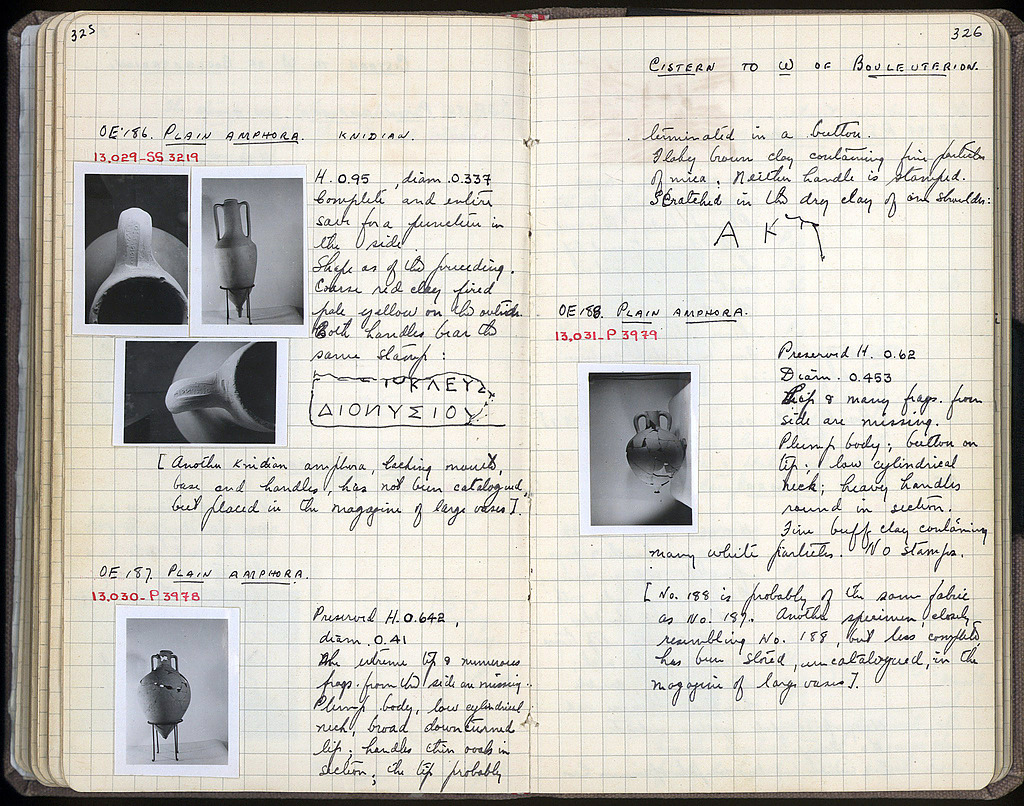 325
OE 186. PLAIN AMPHORA. KNIDIAN.
13.029-SS 3219
H. 0.95, diam. 0.337
Complete and entire
save for a puncture in
the side.
Shape as of the preceding.
Coarse red clay fired
pale yellow on the outside.
Both handles bear the
same stamp:
ΙΟΚΛΕΥΣ
ΔΙΟΝΥΣΙΟΥ
[Another Knidian amphora, lacking mouth,
base and handles, has not been catalogued,
but placed in the magazine of large vases].
OE 187. PLAIN AMPHORA.
13.030-P 3978
Preserved H. 0.642,
diam. 0.41
The extreme tip & numerous
frags. from the side are missing.
Plump body, low cylindrical
neck, broad downturned
lip; handles thin ovals in
section; the tip probably
326
CISTERN TO W OF BOULEUTERION.
terminated in a button.
Flaky brown clay containing fine particles
of mica. Neither handle is stamped.
Scratched in the dry clay of one shoulder:
Α Κ
OE 188. PLAIN AMPHORA.
13.031-P 3979
Preserved H. 0.62
Diam. 0.453
Lip & many frags. from
side are missing.
Plump body; button on
tip; low cylindrical
neck; heavy handles
round in section.
Fine buff clay containing
many white particles. No stamps.
[No. 188 is probably of the same fabric
as No. 187. Another specimen closely
resembling No. 188, but less complete,
has been stored, uncatalogued, in the
magazine of large vases].